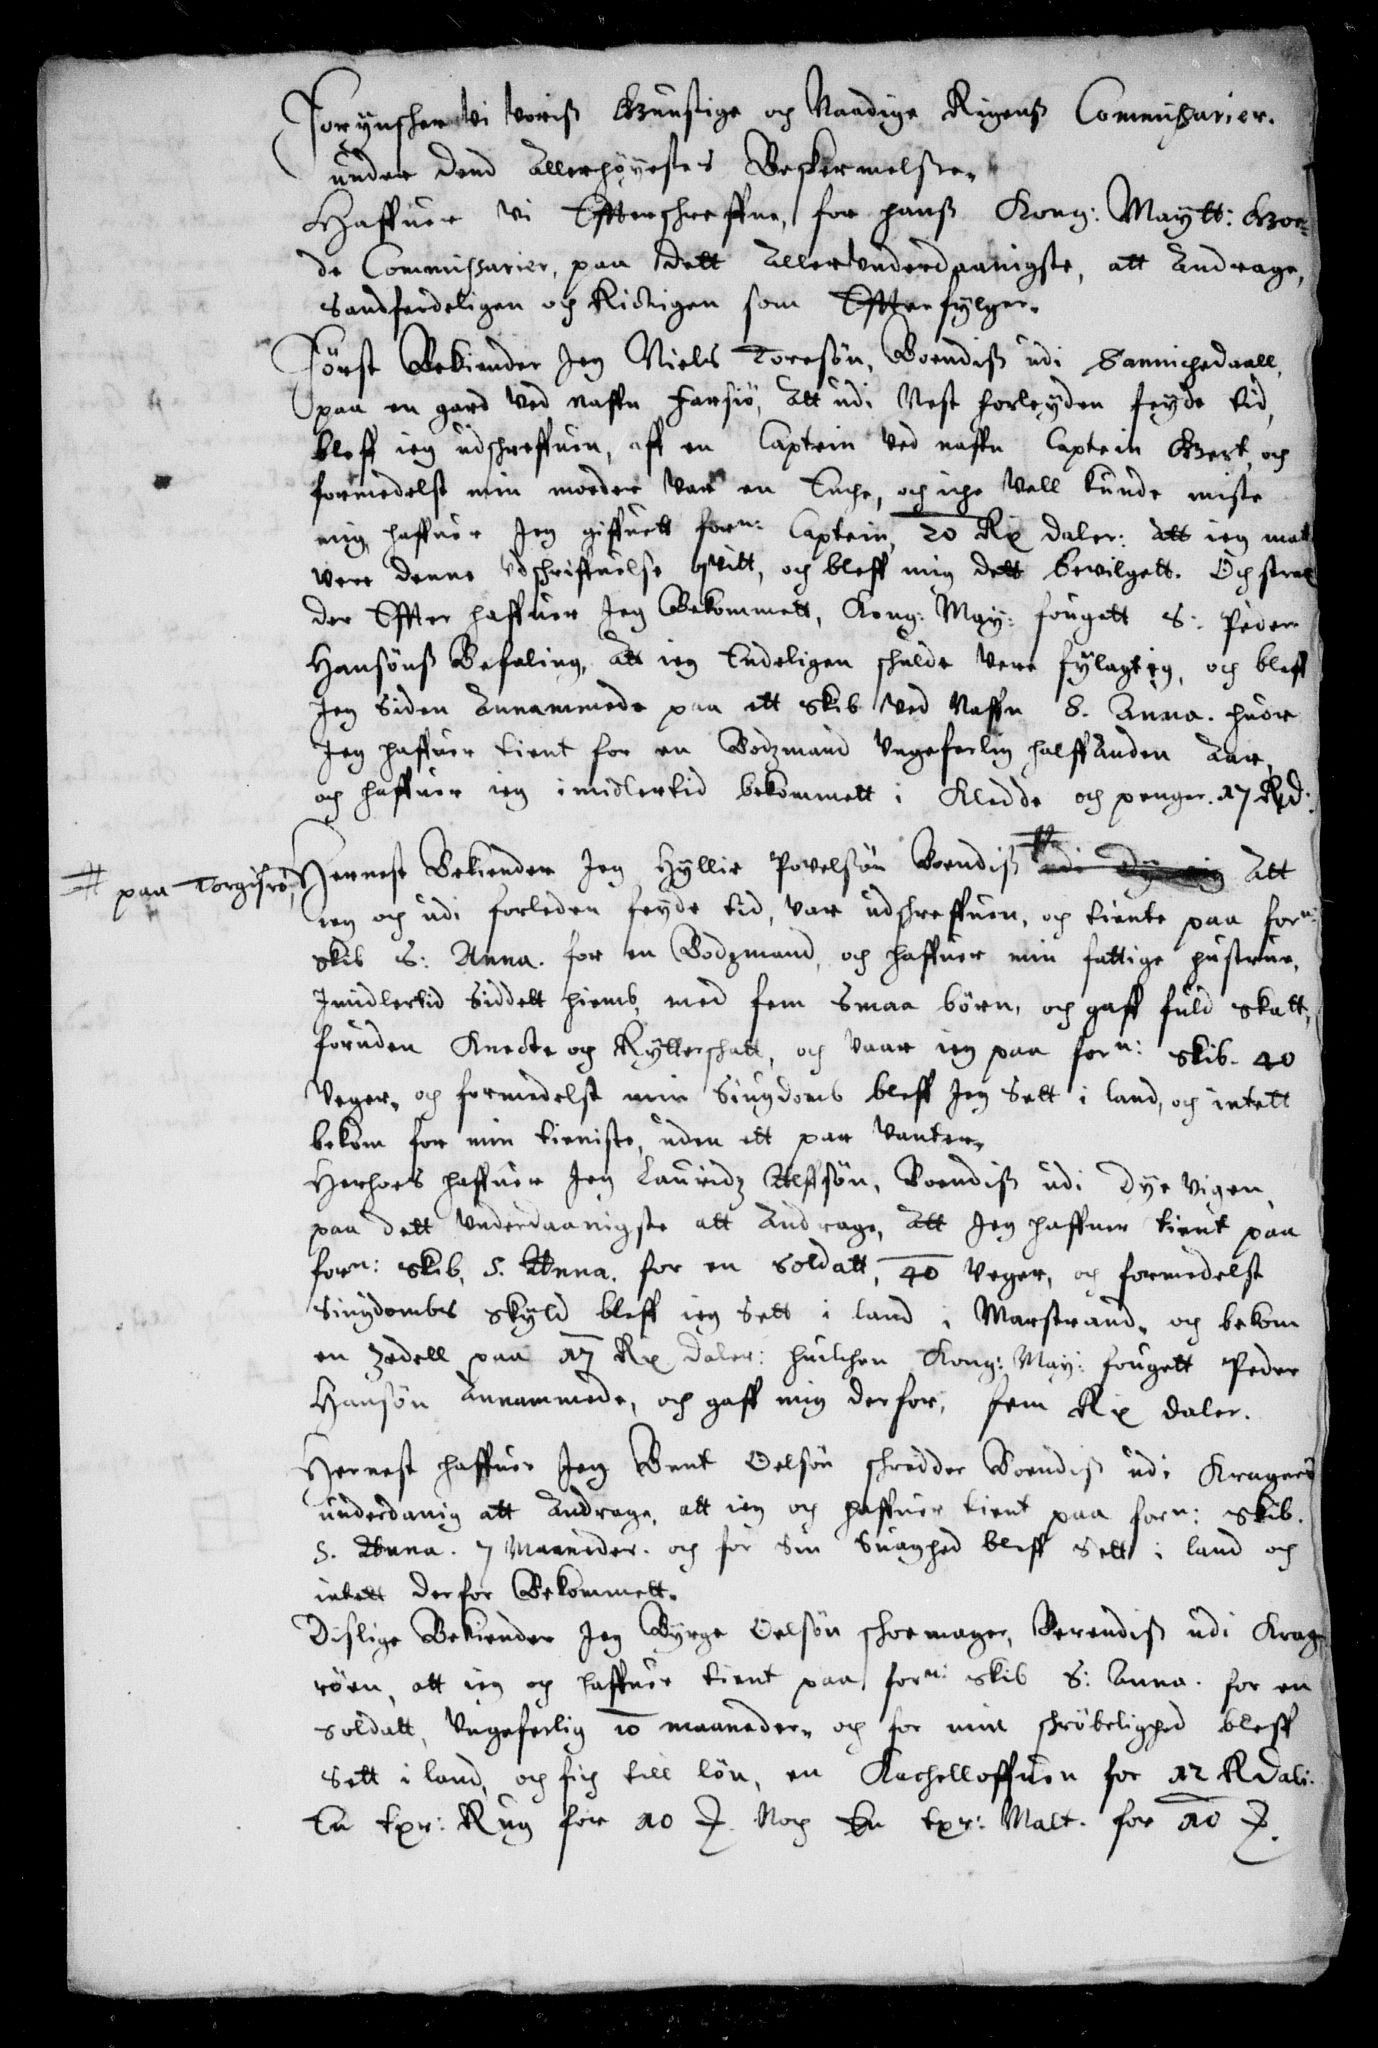 Forynscher Vi Voriß Gunstige och Naadige Rigenß Commissarier.
under dend Allerhöyestes Beskermelße.
Haffuer Vi Effterschreffne, for hanß Kong: Maytt: Goe¬
de Commissarier, paa dett AllerUnderdaanigste, att Andrage,
Sandferdeligen och Richtigen som Effterfylger.
Först Bekiender Jeg Niels Toresön, Boendiß udi Sannichedaall,
paa en gard Ved naffn Farsiö, Att udi Nest forleyden feyde tid,
bleff ieg udschreffuen, aff en Captein Ved naffn Captein Gert, och
formedelst min moeder Var en Enche, och iche Vell kunde miste
mig, haffuer Jeg giffuett forn: Captein, 20 Rix daler: att ieg maatt
Vere denne Udschriffuelse quitt, och bleff mig dett bevilgett. Och strax
der Effter haffuer Jeg Bekommett, Kong: May: fougett S: Peder
Hansönß Befaling, Att ieg Endeligen schulde Vere fylagtig, och bleff
Jeg Siden Annammede paa ett Skib Ved Naffn S. Anna. huor
Jeg haffuer tient for en Bodzmand Ungeferlig halffanden Aar,
och haffuer ieg imidlertid bekommett i Klede och penger. 17 Rd:
# paa Torgisrö,
Hernest Bekiender Jeg Hyllie Povelsön Boendiß # udi Dy Att
ieg och udi forleden feyde tid, Var udschreffuen, och tiente paa forn:
skib S: Anna. for en Bodzmand, och haffuer min fattige hustrue,
Imidlertid Siddett hiemb, med fem Smaa börn, och gaff fuld skatt,
foruden Knecte och Rytterschatt, och Vaar ieg paa forn: skib. 40
Veger, och formedelst min Siugdomb bleff Jeg Sett i land, och intett
bekom for min tieniste, uden ett par Vanter.
Herhoes haffuer Jeg Lauridz Alffsön, Boendiß udi Dye Vigen,
paa dett Underdaanigste att Andrage, Att Jeg haffuer tient paa
forn: Skib, S. Anna. for en Soldatt, 40 Veger, och formedelst
Siugdombs Skyld bleff ieg Sett i land i Marstrand, och bekom
en Zedell paa 17 Rix daler: huilchen Kong: May: fougett Peder
Hansön Annammede, och gaff mig derfor, fem Rix daler.
Hernest haffuer Jeg Bent Oelsön schredder Boendiß udi Kragerö
underdanig att Andrage, att ieg och haffuer tient paa forn: Skib.
S. Anna. 7 Maaneder. och for Sin Suaghed bleff Sett i land och
intett derfor Bekommett.
Dislige Bekiender Jeg Byrge Oelsön schoemager, Boendiß udi Krage
röen, att ieg och haffuer tient paa forn: Skib S: Anna. for en
Soldatt, Ungeferlig 10 maaneder, och for min schröbelighed bleff
Sett i land, och fich till lön, en Kachelloffuen for 12 Rdali:
En txr: Rug for 10 Z. Noch En txr: Malt. for 10 Z.